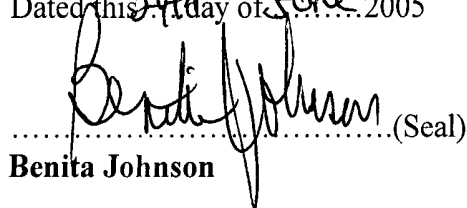 Dated this 24th day of June 2005
Benita Johnson
....................................(Seal)
Benita Johnson